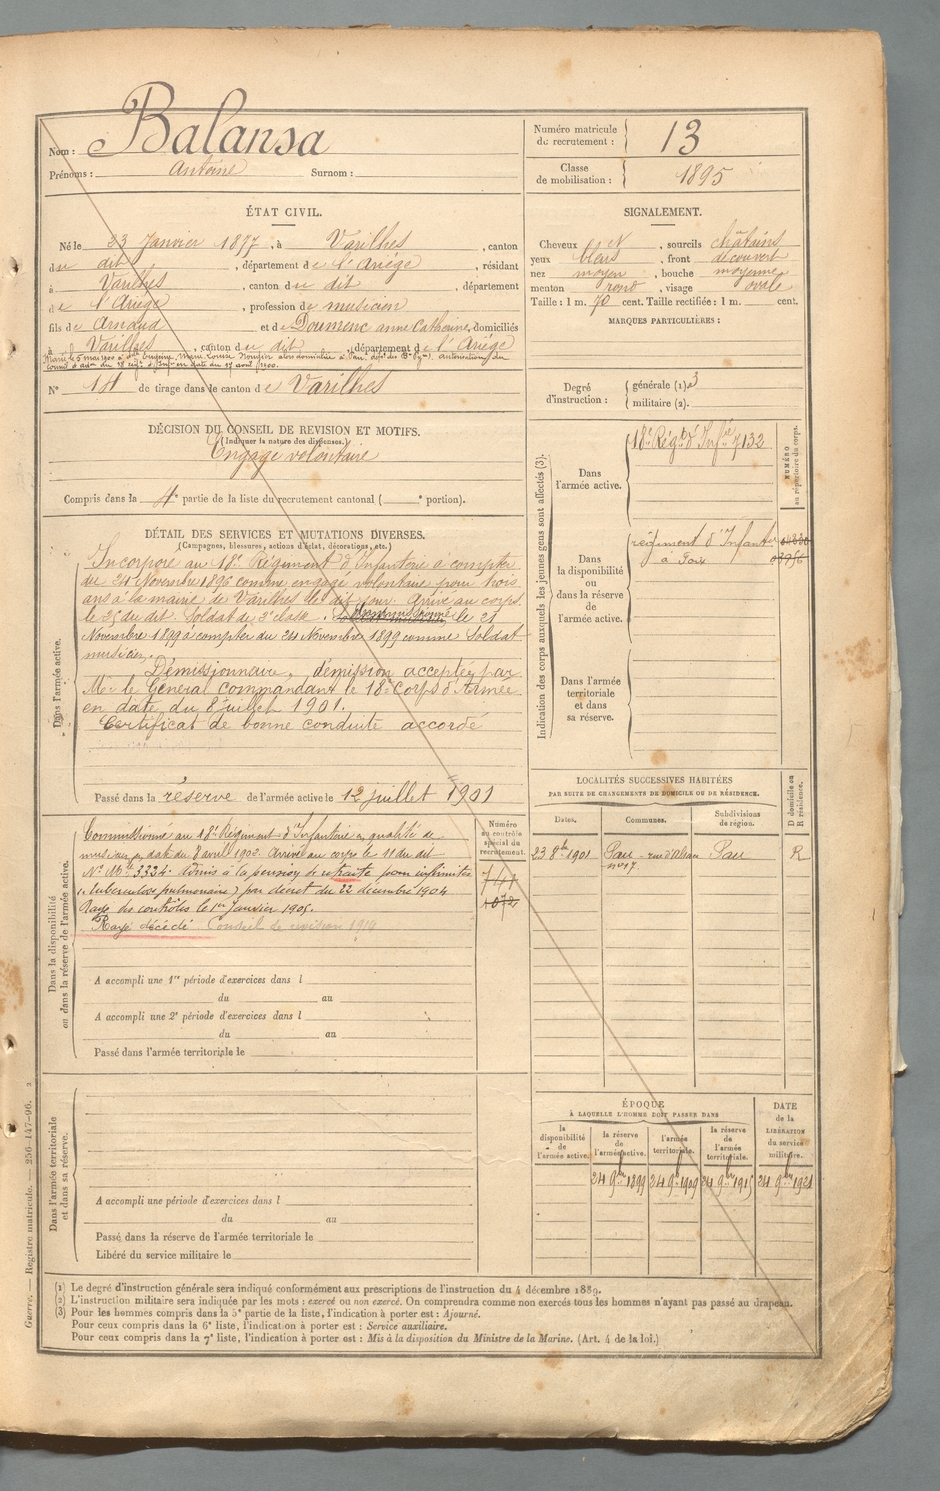 Nom : Balansa
Prénoms : Antoine Surnom :
Numéro matricule du recrutement : 13
Classe de mobilisation : 1895
ÉTAT CIVIL.
Né le 23 Janvier 1877, à Varilhes, canton
du dit, département de l'Ariège, résidant
à Varilhes, canton du dit, département
de l'Ariège, profession de musicien
fils de Arnaud et de Doumenc anne Catherine, domiciliés
à Varilhes, canton du dit, département de l'Ariège
Marié le 5 mai 1900 à
N° 14 de tirage dans le canton de Varilhes
SIGNALEMENT.
Cheveux et, sourcils châtains
yeux bleus, front découvert
nez moyen, bouche moyenne
menton rond, visage ovale
Taille : 1 m. 70 cent. Taille rectifiée : 1 m. cent.
MARQUES PARTICULIÈRES :
Degré d'instruction : générale (1) 3
militaire (2).
DÉCISION DU CONSEIL DE REVISION ET MOTIFS.
(Indiquer la nature des dispenses.)
Engagé volontaire
Compris dans la 4e partie de la liste du recrutement cantonal ( e portion).
DÉTAIL DES SERVICES ET MUTATIONS DIVERSES.
(Campagnes, blessures, actions d'éclat, décorations, etc.)
Dans l'armée active.
Incorporé au 18e Régiment d'Infanterie à compter
du 24 Novembre 1896 comme engagé volontaire pour trois
ans à la mairie de Varilhes le dit jour. Arrivé au corps
le 25 du dit. Soldat de 2e classe. le 21
Novembre 1899 à compter du 24 Novembre 1899 comme Soldat
musicien.
Démissionnaire, démission acceptée par
Mr le Général commandant le 18e Corps d'Armée
en date du 8 juillet 1901.
Certificat de bonne conduite accordé
Passé dans la réserve de l'armée active le 12 juillet 1901
Indication des corps auxquels les jeunes gens sont affectés (3).
NUMÉRO au répertoire du corps.
Dans l'armée active.
18e Régt d'Infie 7132
Dans la disponibilité ou dans la réserve de l'armée active.
régiment d'Infanterie
à Foix
Dans l'armée territoriale et dans sa réserve.
LOCALITÉS SUCCESSIVES HABITÉES
PAR SUITE DE CHANGEMENTS DE DOMICILE OU DE RÉSIDENCE.
D domicile ou R résidence.
Dates. Communes. Subdivisions de région.
23 8bre 1901 Pau - rue d'Orléans Pau R
n° 17
Numéro au contrôle spécial du recrutement.
741
1072
Dans la disponibilité ou dans la réserve de l'armée active.
Commissionné au 18e Régiment d'Infanterie en qualité de
musicien en date du 8 avril 1902. Arrivé au corps le 11 du dit
N° Mle 3334. Admis à la pension de retraite pour infirmités
(tuberculose pulmonaire) par décret du 22 décembre 1904
Rayé des contrôles le 1er Janvier 1905.
Rayé décédé Conseil de révision 1914
A accompli une 1re période d'exercices dans l
du au
A accompli une 2e période d'exercices dans l
du au
Passé dans l'armée territoriale le
Dans l'armée territoriale et dans sa réserve.
A accompli une période d'exercices dans l
du au
Passé dans la réserve de l'armée territoriale le
Libéré du service militaire le
ÉPOQUE
À LAQUELLE L'HOMME DOIT PASSER DANS
la disponibilité de l'armée active.
la réserve de l'armée active.
l'armée territoriale.
la réserve de l'armée territoriale.
DATE de la LIBÉRATION du service militaire.
24 9bre 1899 24 9bre 1909 24 9bre 1915 24 9bre 1921
(1) Le degré d'instruction générale sera indiqué conformément aux prescriptions de l'instruction du 4 décembre 1889.
(2) L'instruction militaire sera indiquée par les mots : exercé ou non exercé. On comprendra comme non exercés tous les hommes n'ayant pas passé au drapeau.
(3) Pour les hommes compris dans la 5e partie de la liste, l'indication à porter est : Ajourné.
Pour ceux compris dans la 6e liste, l'indication à porter est : Service auxiliaire.
Pour ceux compris dans la 7e liste, l'indication à porter est : Mis à la disposition du Ministre de la Marine. (Art. 4 de la loi.)
Guerre. — Registre matricule. — 256-147-96.